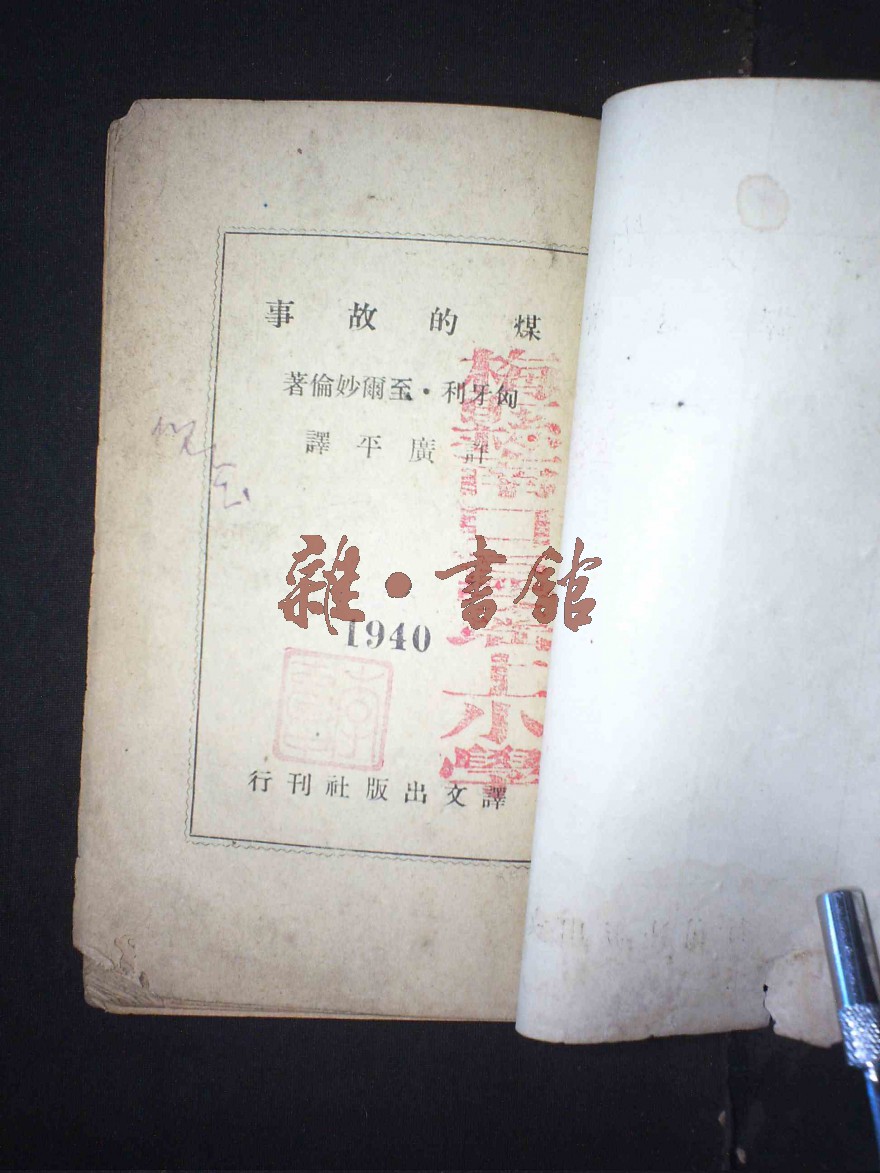 煤的故事
匈牙利·至爾妙倫著
許廣平譯
雜·書館
1940
譯文出版社刊行
上小學